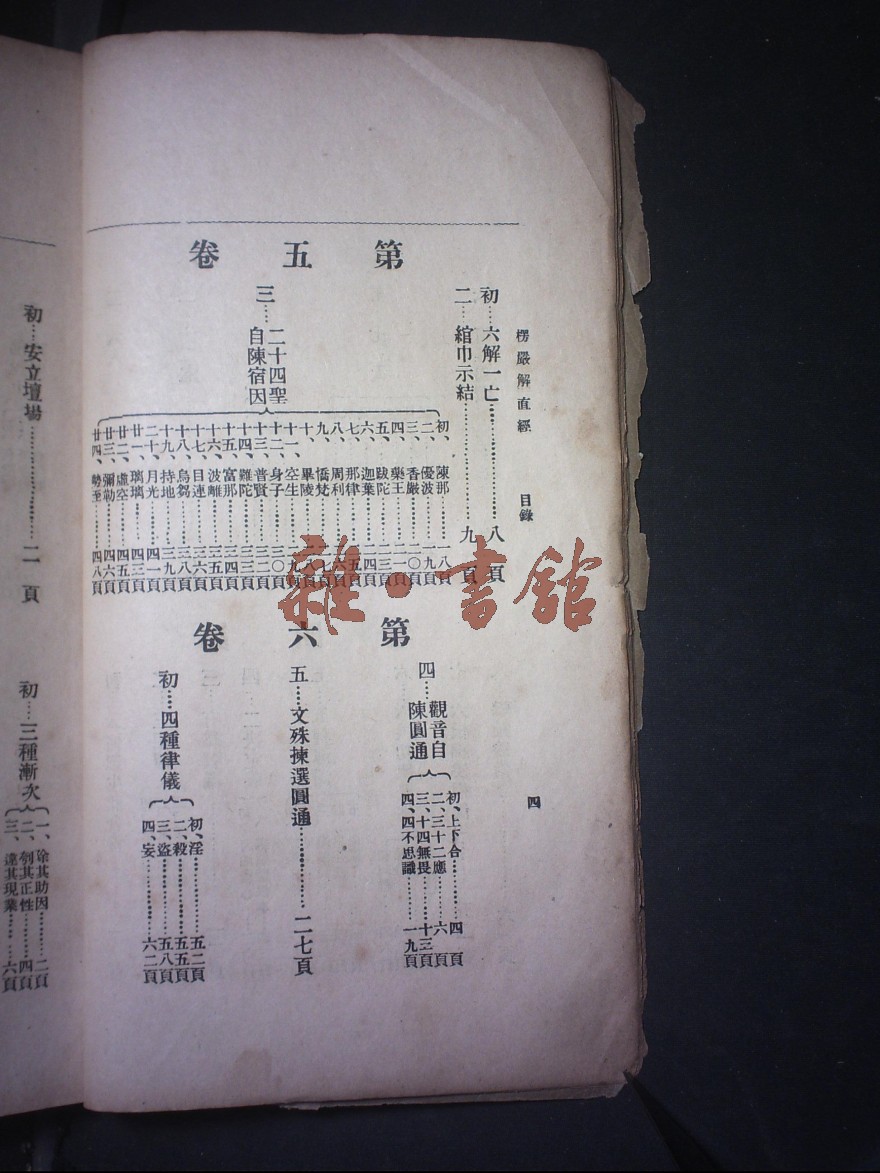 楞嚴解直經 目錄 四
第五卷
初……六解一亡……八頁
二……綰巾示結……九頁
三……二十四聖
自陳宿因
初、陳那……一八頁
二、優波……一九頁
三、香嚴……二〇頁
四、藥王……二一頁
五、跋陀……二三頁
六、迦葉……二四頁
七、那律……二五頁
八、周利……二六頁
九、憍梵……二七頁
十、畢陵……二八頁
十一、空生……二九頁
十二、身子……三〇頁
十三、普賢……三二頁
十四、難陀……三三頁
十五、富那……三四頁
十六、波離……三五頁
十七、目連……三六頁
十八、烏芻……三八頁
十九、持地……三九頁
二十、月光……四一頁
廿一、璃璃……四三頁
廿二、虛空……四五頁
廿三、彌勒……四六頁
廿四、勢至……四八頁
第六卷
四……觀音自
陳圓通
初、上下合……四頁
二、三十二應……六頁
三、十四無畏……十三頁
四、四不思議……一九頁
五……文殊揀選圓通……二七頁
初……四種律儀
初、淫……五二頁
二、殺……五五頁
三、盜……五八頁
四、妄……六二頁
初……安立壇場……二頁
初……三種漸次
一、除其助因……二頁
二、刳其正性……四頁
三、違其現業……六頁
雜·書館